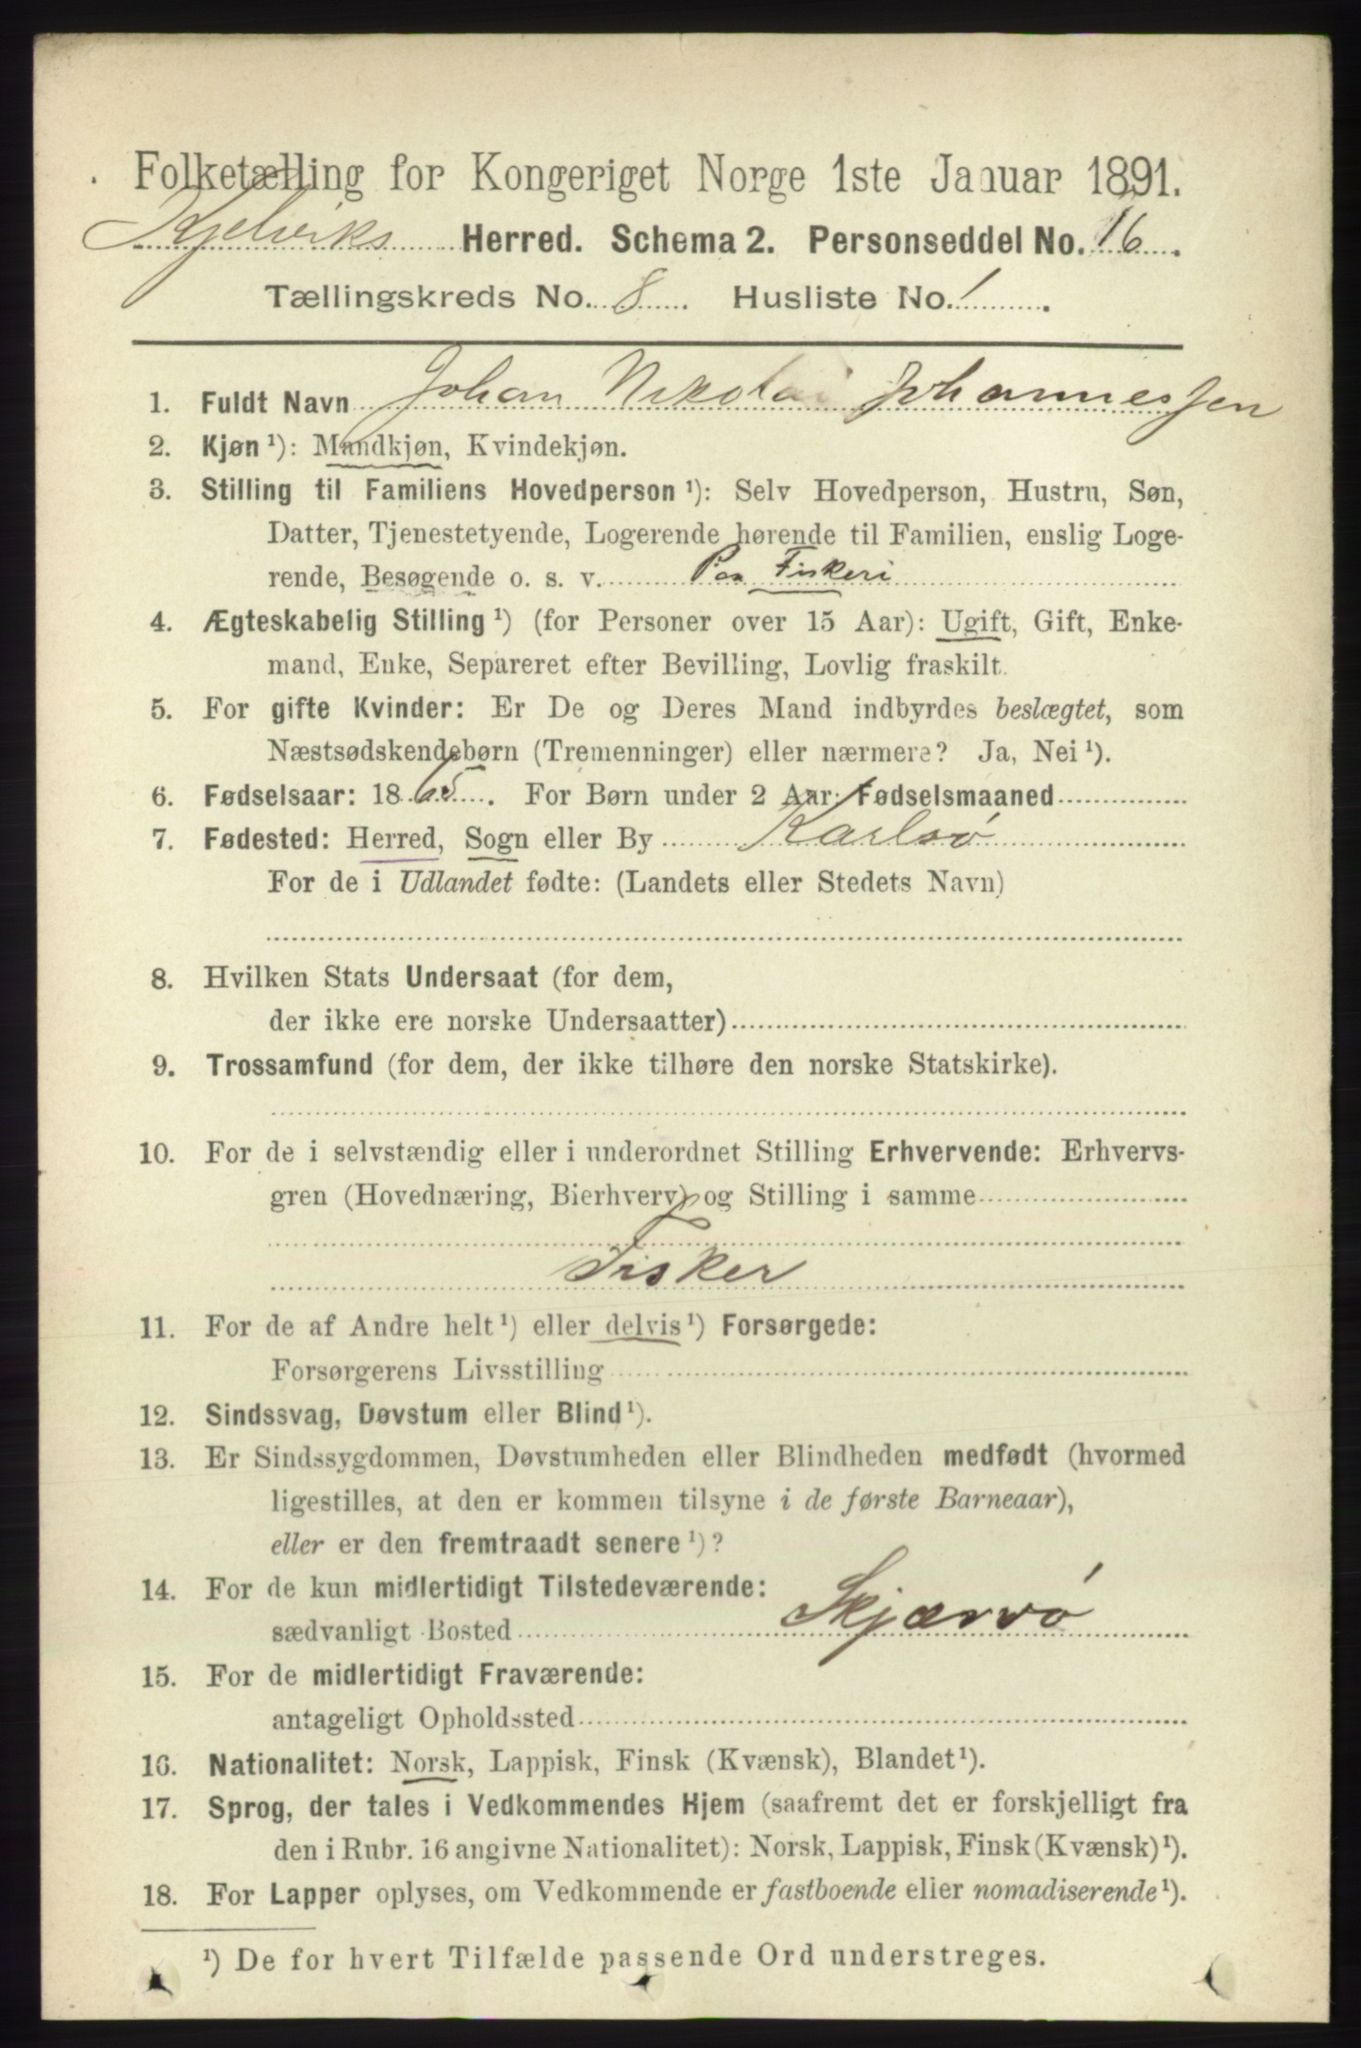 Folketælling for Kongeriget Norge 1ste Januar 1891.
Kjelviks Herred. Schema 2. Personseddel No. 16.
Tællingskreds No. 8. Husliste No. 1.
1. Fuldt Navn Johan Nikolai Johannessen
2. Kjøn ¹): Mandkjøn, Kvindekjøn.
3. Stilling til Familiens Hovedperson ¹): Selv Hovedperson, Hustru, Søn,
Datter, Tjenestetyende, Logerende hørende til Familien, enslig Loge-
rende, Besøgende o. s. v. Paa Fiskeri
4. Ægteskabelig Stilling ¹) (for Personer over 15 Aar): Ugift, Gift, Enke-
mand, Enke, Separeret efter Bevilling, Lovlig fraskilt.
5. For gifte Kvinder: Er De og Deres Mand indbyrdes beslægtet, som
Næstsødskendebørn (Tremenninger) eller nærmere? Ja, Nei ¹).
6. Fødselsaar: 1865. For Børn under 2 Aar: Fødselsmaaned
7. Fødested: Herred, Sogn eller By Karlsø
For de i Udlandet fødte: (Landets eller Stedets Navn)
8. Hvilken Stats Undersaat (for dem,
der ikke ere norske Undersaatter)
9. Trossamfund (for dem, der ikke tilhøre den norske Statskirke).
10. For de i selvstændig eller i underordnet Stilling Erhvervende: Erhvervs-
gren (Hovednæring, Bierhverv) og Stilling i samme
Fisker
11. For de af Andre helt ¹) eller delvis ¹) Forsørgede:
Forsørgerens Livsstilling
12. Sindssvag, Døvstum eller Blind ¹).
13. Er Sindssygdommen, Døvstumheden eller Blindheden medfødt (hvormed
ligestilles, at den er kommen tilsyne i de første Barneaar),
eller er den fremtraadt senere ¹)?
14. For de kun midlertidigt Tilstedeværende:
sædvanligt Bosted Skjærvø
15. For de midlertidigt Fraværende:
antageligt Opholdssted
16. Nationalitet: Norsk, Lappisk, Finsk (Kvænsk), Blandet ¹).
17. Sprog, der tales i Vedkommendes Hjem (saafremt det er forskjelligt fra
den i Rubr. 16 angivne Nationalitet): Norsk, Lappisk, Finsk (Kvænsk) ¹).
18. For Lapper oplyses, om Vedkommende er fastboende eller nomadiserende ¹).
¹) De for hvert Tilfælde passende Ord understreges.